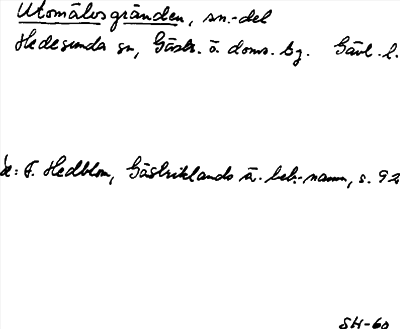 Utomålosgränden, sn.-del
Hedesunda sn, Gästr. ö. doms. bg. Gävl. l.
F. Hedblom, Gästriklands ä. beb.-namn, s. 92
SH-60